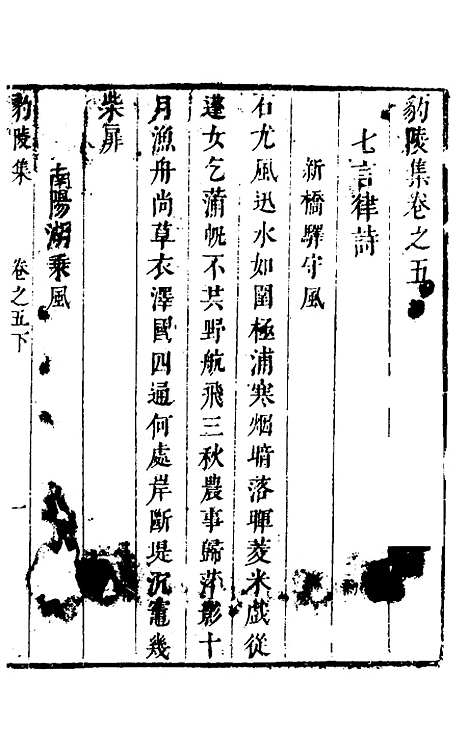 豹陵集卷之五
七言律詩
新橋驛守風
石尤風迅水如圍極浦寒烟暗落暉菱米戱從
蓬女乞蒲帆不共野航飛三秋農事歸萍影十
月漁舟尚草衣澤國四通何處岸斷堤沉竈幾
柴扉
南陽湖乘風
豹陵集
卷之五下
一